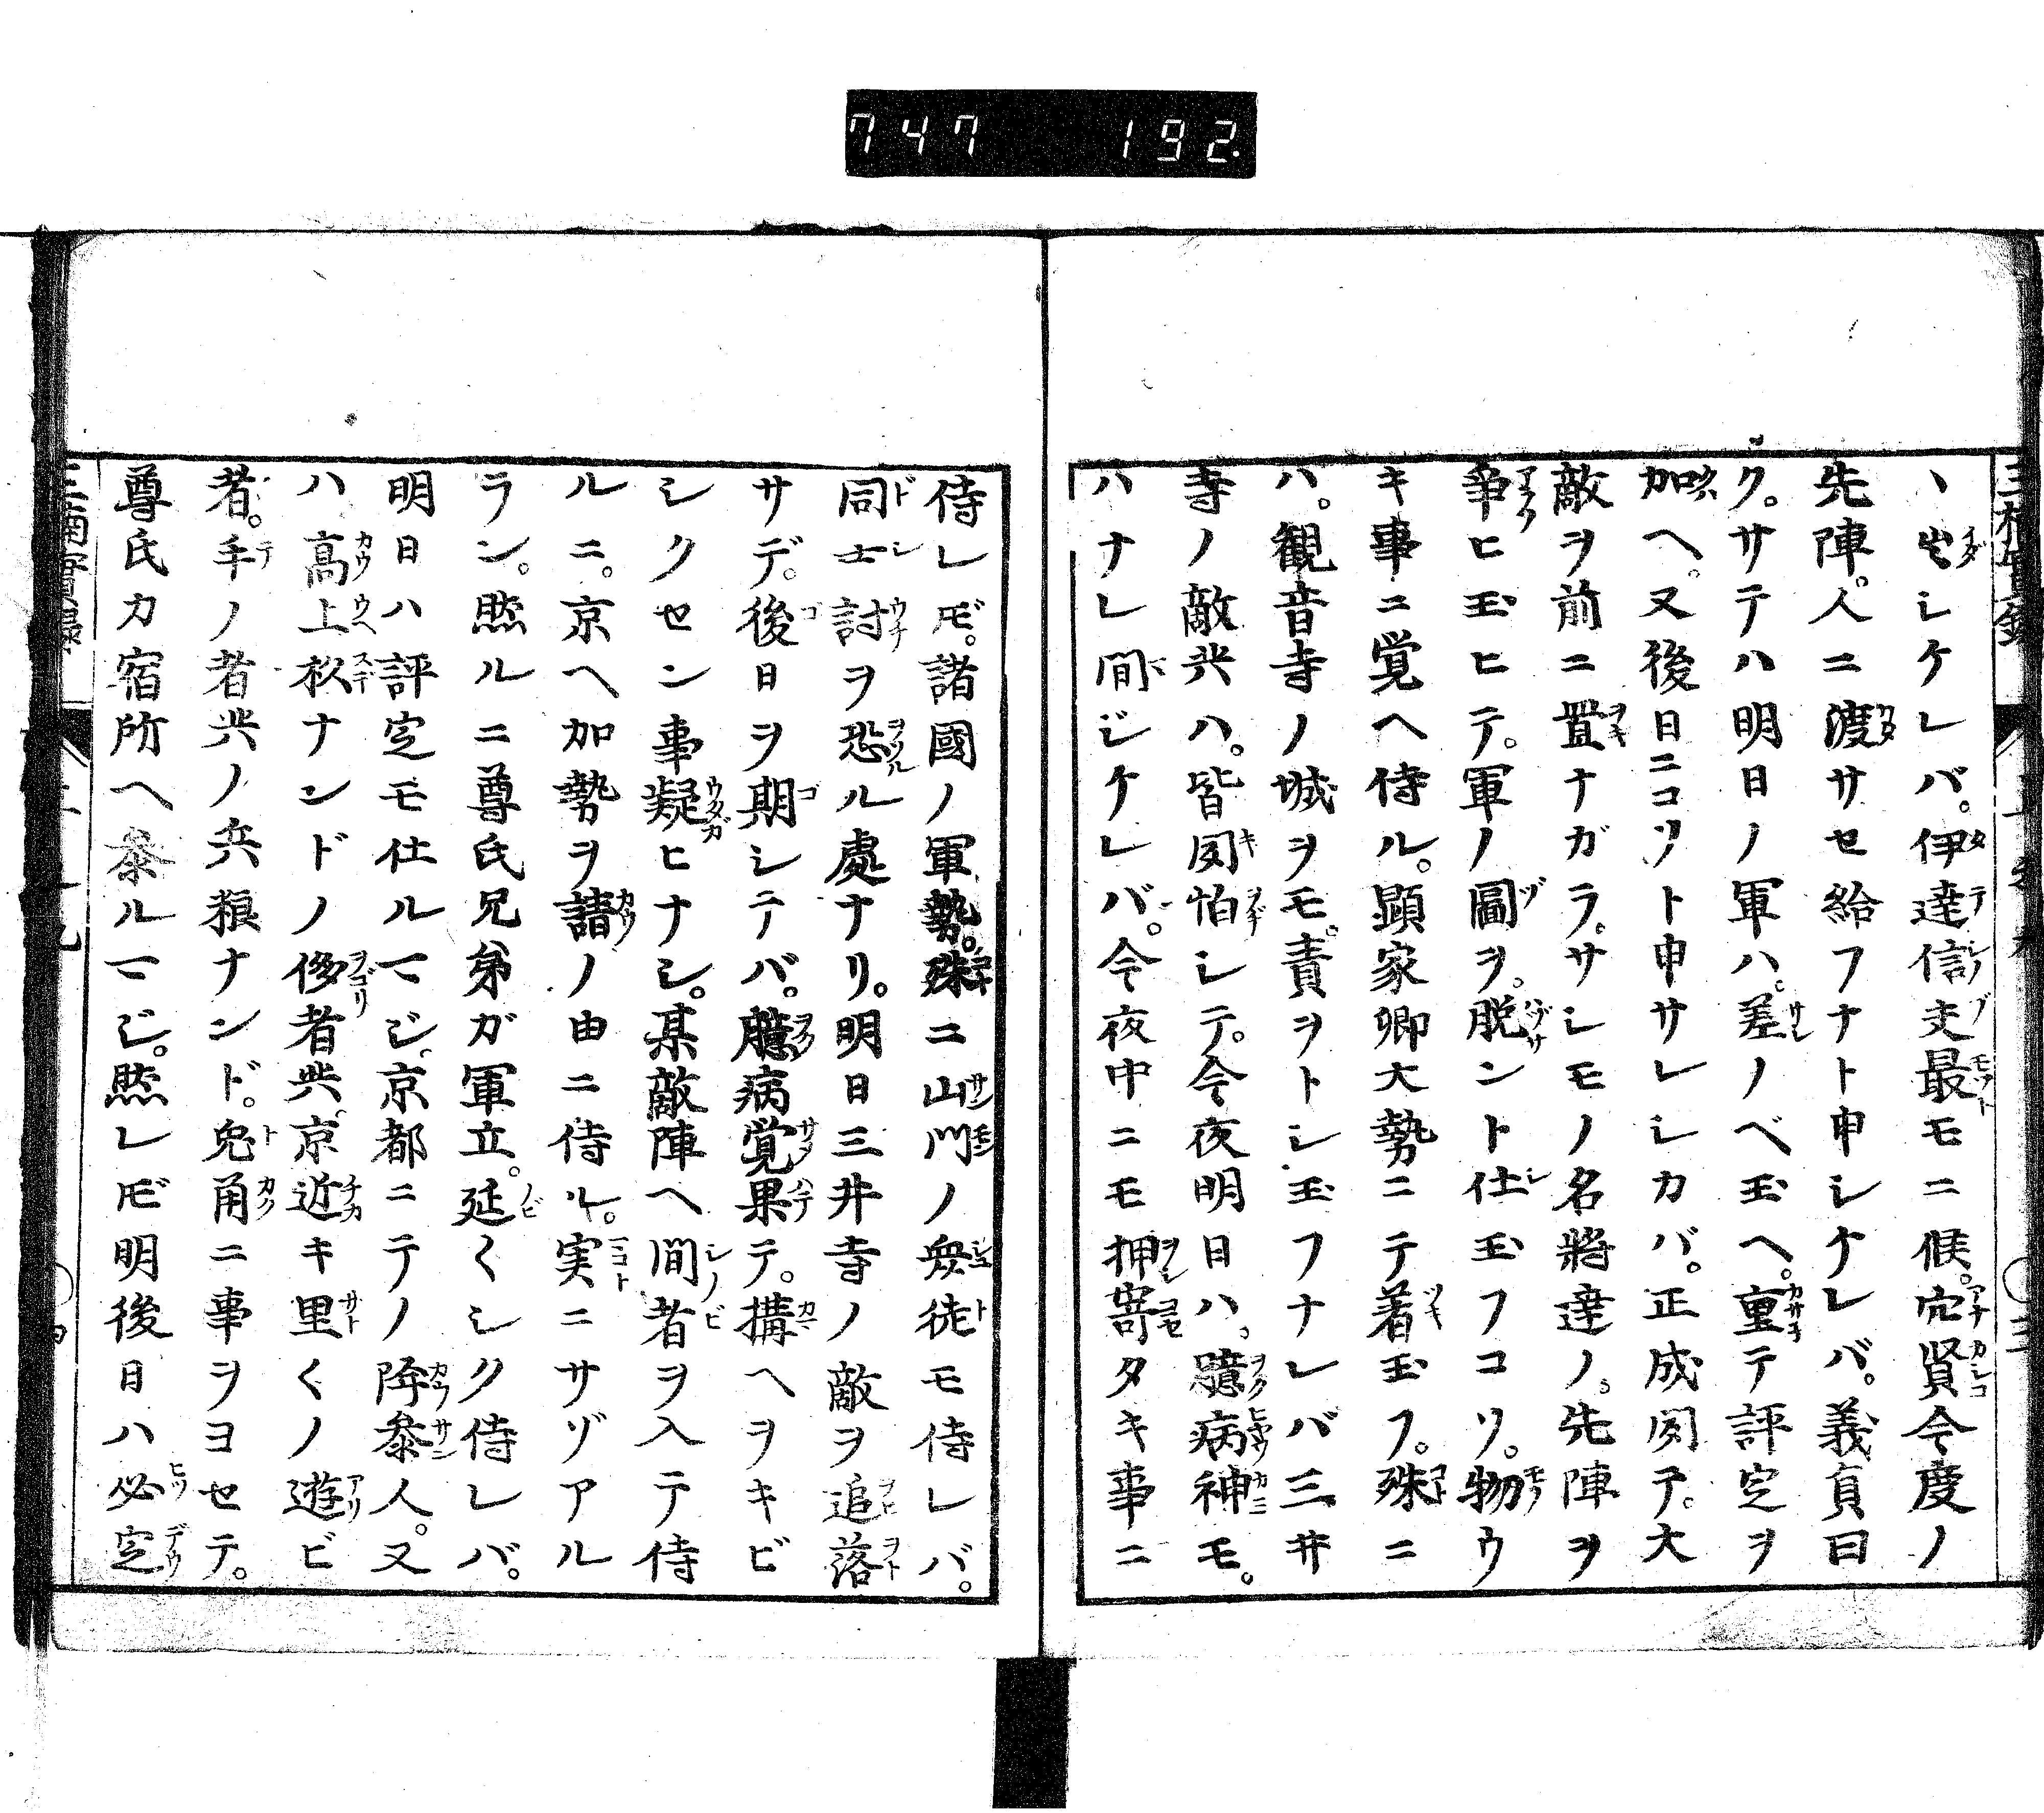 747 192.
ヽ出シケレバ。伊達信夫最モニ候。穴賢今度ノ
先陣。人ニ渡サセ給フナト申シケレバ。義貞曰
ク。サテハ明日ノ軍ハ。差ノベ玉ヘ。重テ評定ヲ
加ヘ。又後日ニコソト申サレシカバ。正成聞テ。大
敵ヲ前ニ置ナガラ。サシモノ名將達ノ。先陣ヲ
爭ヒ玉ヒテ。軍ノ圖ヲ。脱ント仕玉フコソ。物ウ
キ事ニ覚ヘ侍ル。顕家卿大勢ニテ着玉フ。殊ニ
ハ。観音寺ノ城ヲモ。責ヲトシ玉フナレバ三井
寺ノ敵共ハ。皆聞怕シテ。今夜明日ハ。臆病神モ。
ハナレ間ジケレバ。今夜中ニモ押寄タキ事ニ
侍レ𪜈。諸國ノ軍勢。殊ニ山門ノ衆徒モ侍レバ。
同士討ヲ恐ル處ナリ。明日三井寺ノ敵ヲ追落
サデ。後日ヲ期シテバ。臆病覚果テ。搆ヘヲキビ
シクセン事疑ヒナシ。某敵陣ヘ間者ヲ入テ侍
ルニ。京ヘ加勢ヲ請ノ由ニ侍ル。実ニサゾアル
ラン。然ルニ尊氏兄弟ガ軍立。延〱シク侍レバ。
明日ハ評定モ仕ルマジ。京都ニテノ降参人。又
ハ高上杦ナンドノ侈者共。京近キ里〱ノ遊ビ
者。手ノ者共ノ兵粮ナンド。兔角ニ事ヲヨセテ。
尊氏カ宿所ヘ参ルマジ。然レ𪜈明後日ハ必定